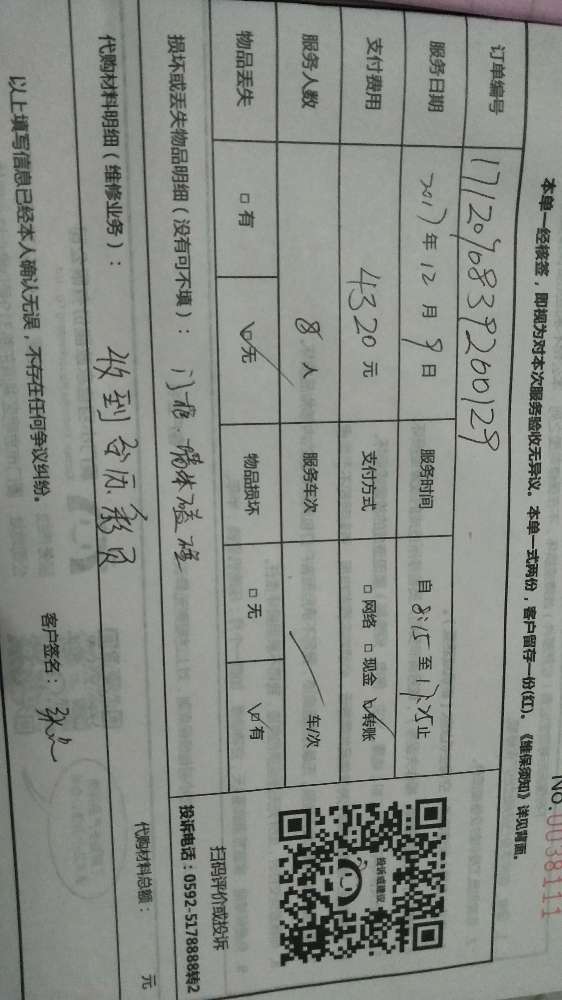 No.0038111
本单一经核签，即视为对本次服务验收无异议。本单一式两份，客户留存一份(红)。《维保须知》详见背面。
订单编号 1712096839200129
服务日期 2017年12月9日 服务时间 自 8:15 至 17:25 止
支付费用 4320 元 支付方式 □ 网络 □ 现金 ☑ 转账
服务人数 8 人 服务车次 / 车/次
物品丢失 □ 有 ☑ 无 物品损坏 □ 无 ☑ 有
损坏或丢失物品明细（没有可不填）： 门框、墙体磕碰
代购材料明细（维修业务）： 收到台历、彩页
代购材料总额： 元
以上填写信息已经本人确认无误，不存在任何争议纠纷。
客户签名：
投诉或建议
扫码评价或投诉
投诉电话：0592-5178888转2